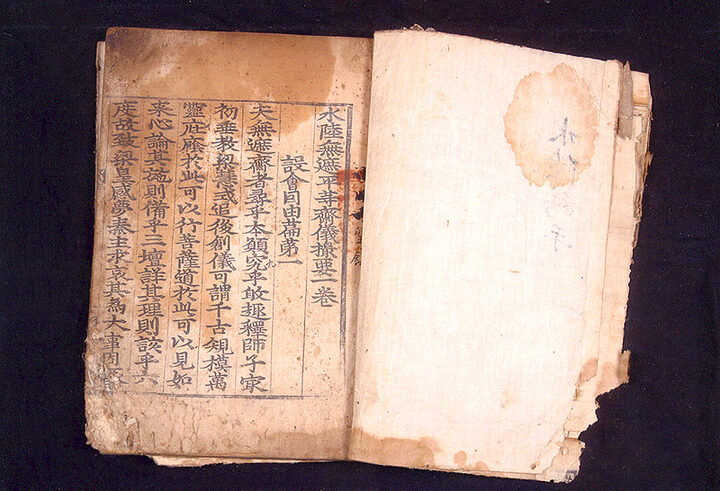 水陸無遮平䓁齋儀撮要一卷
設會因由篇第一
夫無遮齋者尋乎本願究乎攸趣釋師子㝡
初垂教梁武追後創儀可謂千古䂓模萬
靈庇廕於此可以行菩薩道於此可以見如
来心論其施則備乎三壇詳其理則該乎六
度故致梁皇感夢秦主求哀其為大事因